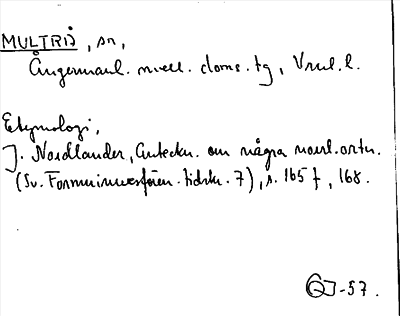 MULTRÅ, sn,
Ångermanl. mell. doms. tg, Vnrl. l.
Etymologi,
J. Nordlander, Anteckn. om några norrl. ortn.
(Sv. Fornminnesfören. tidskr. 7), s. 165 f, 168.
-57.